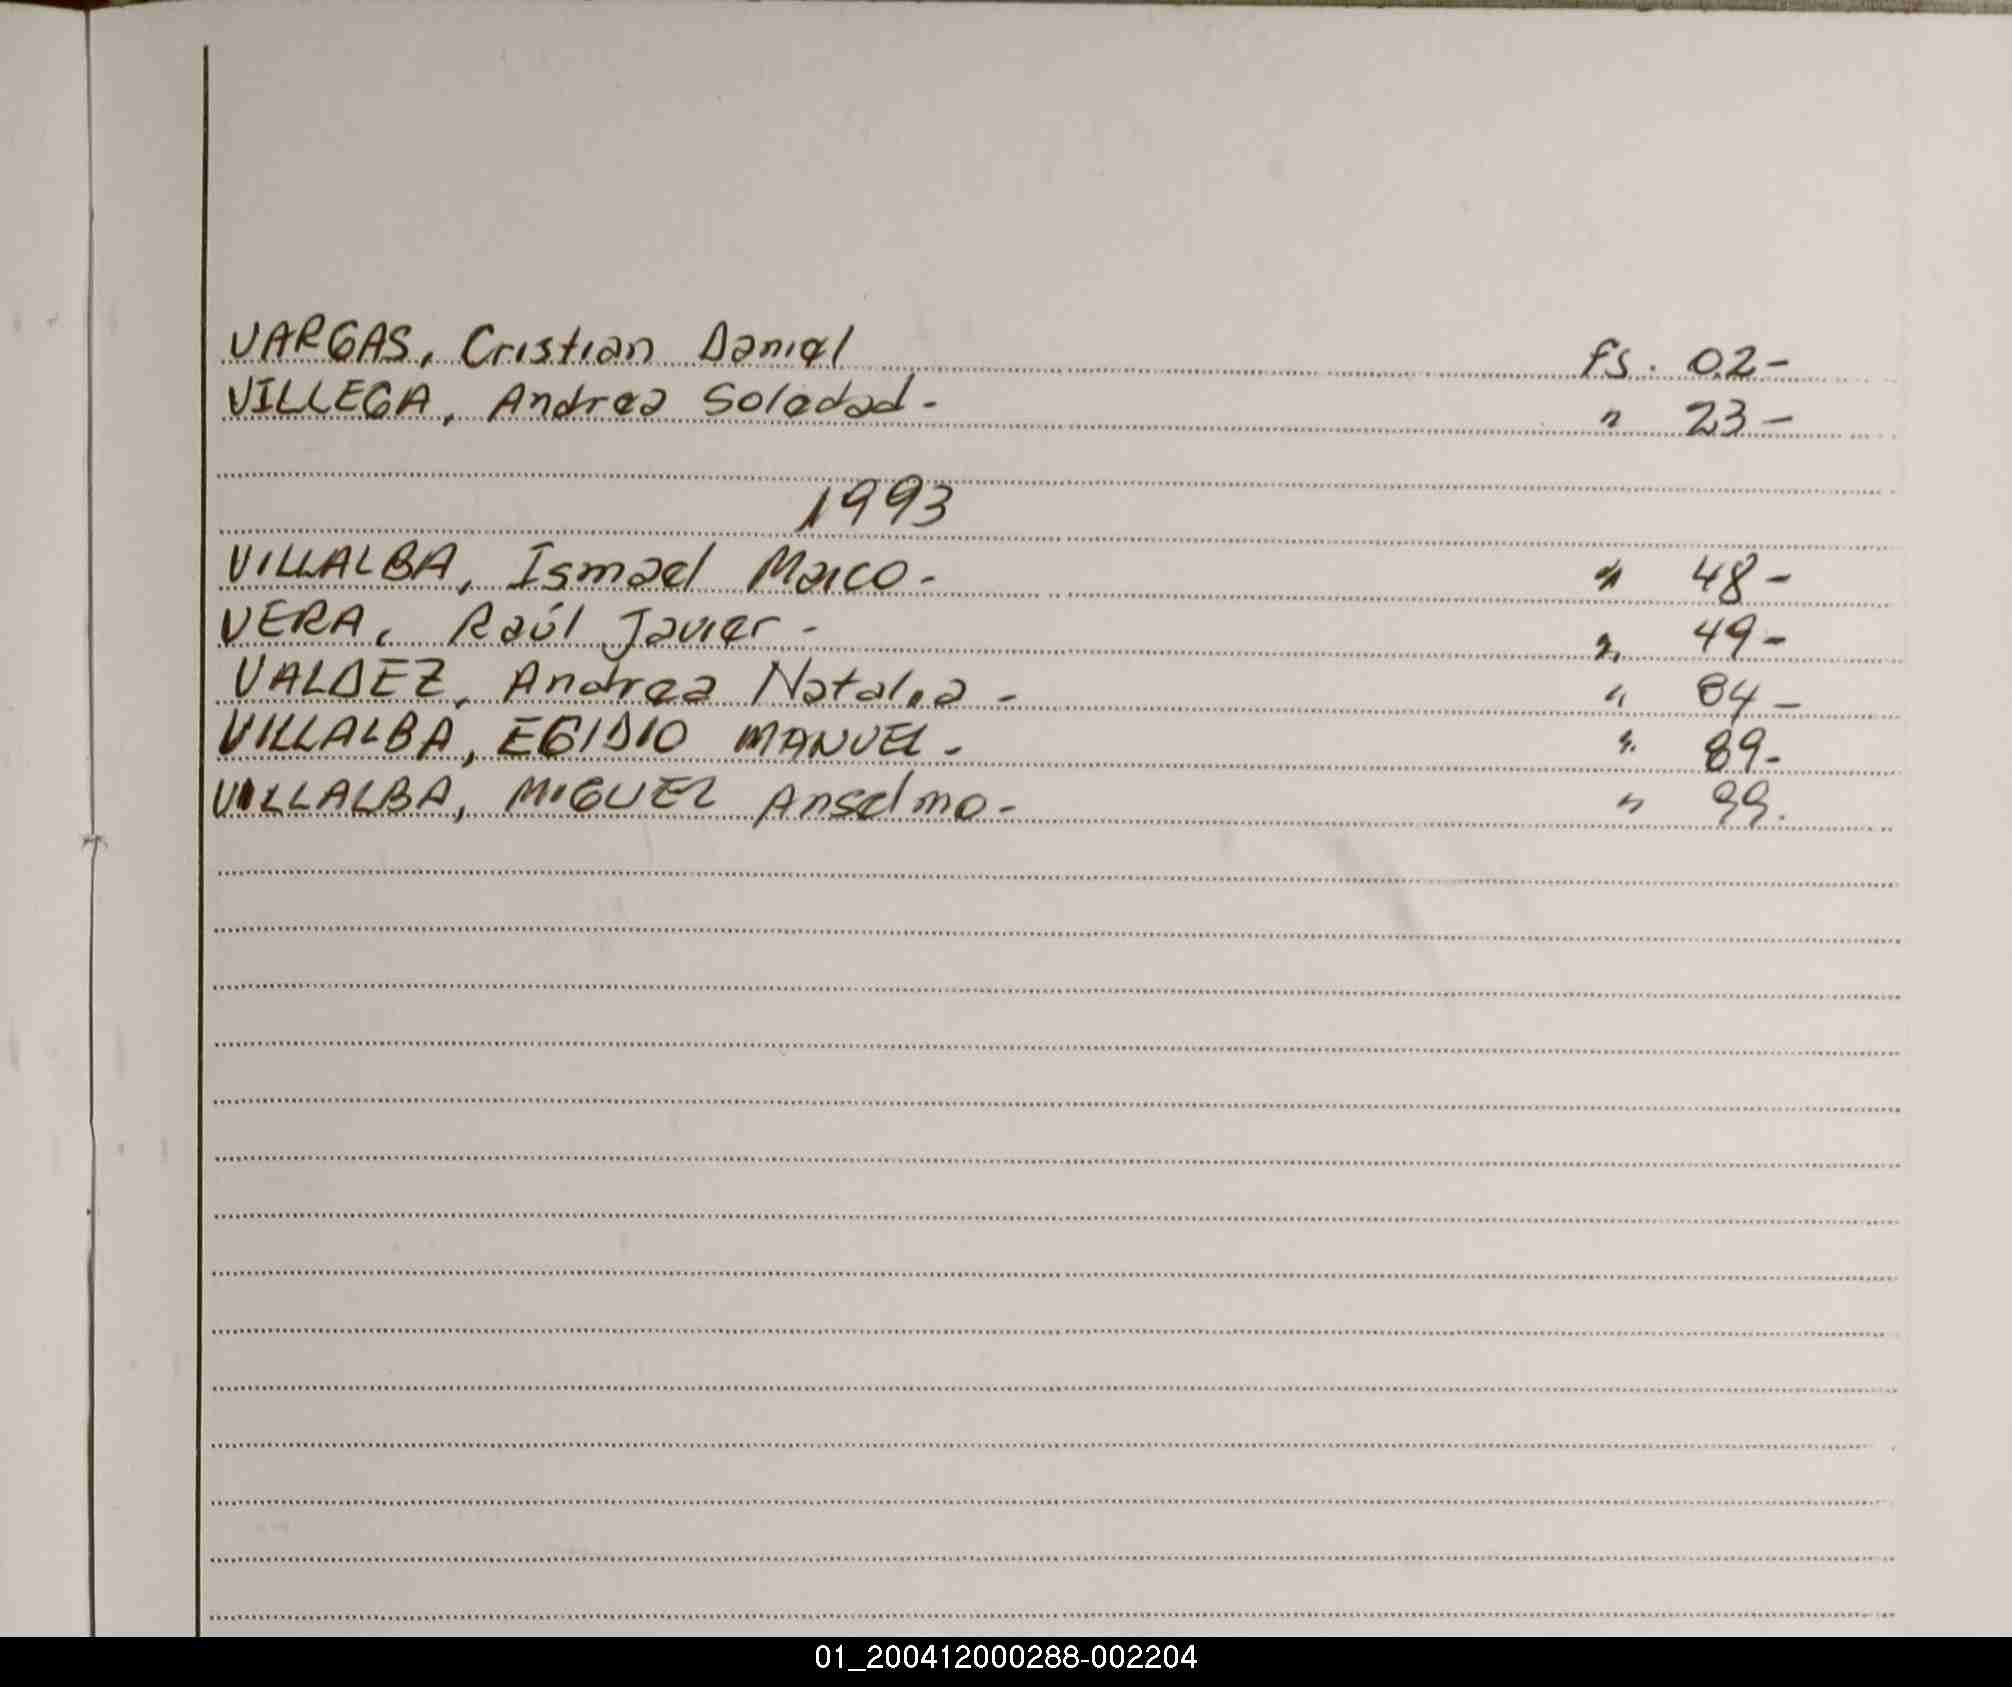 VARGAS, Cristian Daniel fs. 02-
VILLEGA, Andrea Soledad - " 23-
1993
VILLALBA, Ismael Maico - " 48-
VERA, Raúl Javier - " 49-
VALDEZ, Andrea Natalia - " 84-
VILLALBA, EGIDIO MANUEL - " 89-
VILLALBA, MIGUEL Anselmo - " 99.
01_200412000288-002204